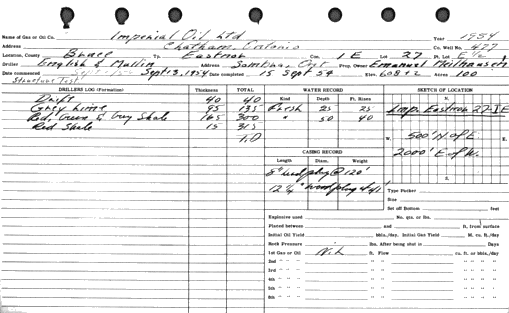 Name of Gas or Oil Co. Imperial Oil Ltd Year 1954
Address Chatham, Ontario Co. Well No. 477
Location, County Bruce Tp. Eastnor Con. I E Lot 27 Pt. Lot E½
Driller English & Mullin Address Sombra, Ont Prop. Owner Emanuel Heilhausen
Date commenced Sept 13, 1954 Date completed 15 Sept 54 Elev. 608.42 Acres 100
Structure Test
DRILLERS LOG (Formation) Thickness TOTAL WATER RECORD SKETCH OF LOCATION
Kind Depth Ft. Rises N.
Drift 40 40
Grey Lime 95 135 Fresh 25 25 Imp. Eastnor 27-I E
Red, Green & Grey Shale 165 300 " 50 40
Red Shale 15 315
T.D
W. 500' N of E.
2000' E of W.
S.
CASING RECORD
Length Diam. Weight
8" wood plug @ 120'
12¼" wood plug at 41'
Type Packer
Size
Set off Bottom feet
Explosive used No. qts. or lbs.
Placed between and ft. from surface
Initial Oil Yield bbls./day. Initial Gas Yield M. cu. ft./day
Rock Pressure lbs. After being shut in Days
1st Gas or Oil Nil ft. Flow cu. ft. or bbls./day
2nd " " " " " " "
3rd " " " " " " "
4th " " " " " " "
5th " " " " " " "
6th " " " " " " "